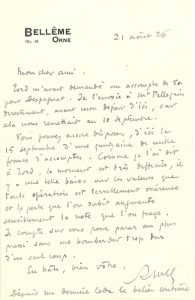 BELLÊME
TEL. 38 ORNE
21 août 26
Mon cher ami.
Zord m'avait demandé un acompte de 50.
pour Despaprat. Je l'envoie à Mr Pellegrin
directement, avant mon départ d'ici, car
cela nous remettait au 10 septembre.
Vous pouvez encore disposer, d'ici le
15 septembre d'une quinzaine de mille
francs d'acomptes. Comme je l'ai dit
à Zord, le moment est très difficile, il
y a une telle baisse sur les valeurs que
toute opération est terriblement onéreuse
et le reste que l'on subit augmente
sensiblement la note que l'on paye.
Je compte sur vous pour parer au plus
pressé sans me bombarder trop dur
d'un seul coup.
En hâte, bien vôtre,
Depuis ma dernière lettre le délire continue